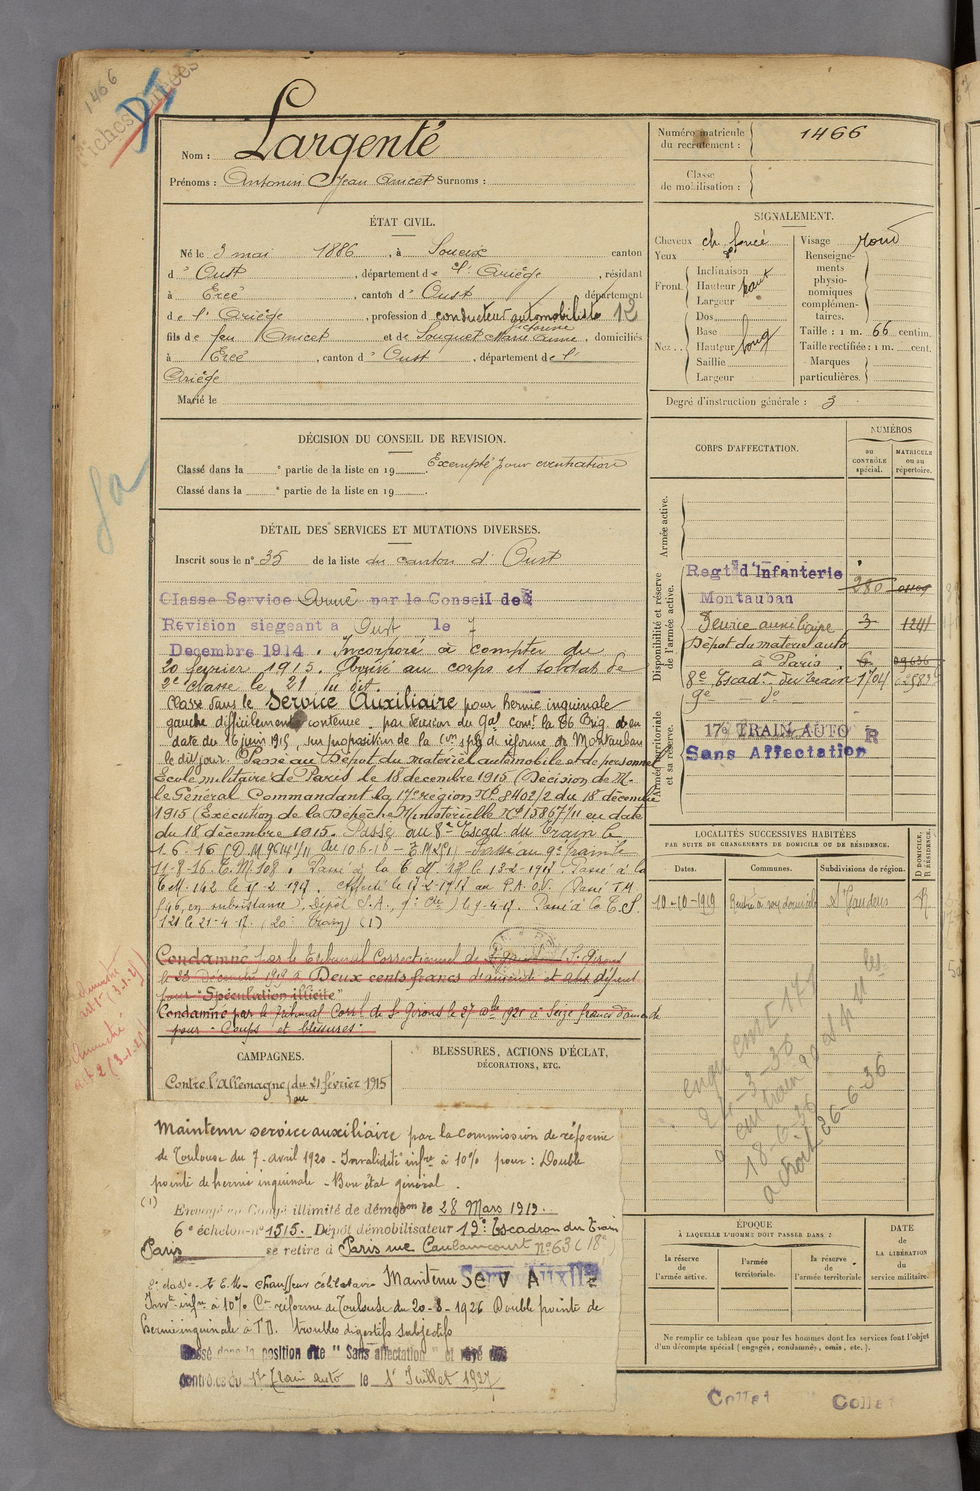 1466
Fiches
DI
Nom : Largenté
Prénoms : Antonin Jean Amicet Surnoms :
ÉTAT CIVIL.
Né le 3 mai 1886, à Soueix canton
d' Oust, département de l'Ariège, résidant
à Ercé, canton d' Oust, département
de l'Ariège, profession d conducteur automobiliste 12
fils de feu Amicet et de Souquet Marie Anne Victorine, domiciliés
à Ercé, canton d' Oust, département de l'
Ariège
Marié le
DÉCISION DU CONSEIL DE REVISION.
Classé dans la ° partie de la liste en 19 . Exempté pour éventration
Classé dans la ° partie de la liste en 19 .
DÉTAIL DES SERVICES ET MUTATIONS DIVERSES.
Inscrit sous le n° 35 de la liste du canton d' Oust
Classe Service Armé par le Conseil de
Revision siegeant a Oust le 7
Decembre 1914. Incorporé à compter du
20 février 1915. Arrivé au corps et soldat de
2e classe le 21 du dit.
Classé dans le Service Auxiliaire pour hernie inguinale
gauche difficilement contenue par décision du Gal Comt la 66 Brig. en
date du 16 juin 1915, sur proposition de la Con splé de réforme de Montauban
le dit jour. Passé au Dépôt du matériel automobile et de personnel
Ecole militaire de Paris le 18 decembre 1915 (Décision de M.
le Général Commandant la 17e région No 8402/2 du 18 décembre
1915 (Exécution de la Dépêche Ministérielle No 15867/11 en date
du 18 décembre 1915. Passé au 8e Escad. du Train le
1.6.16 (D.M. 9614 1/11 du 10.6.16
11-8-16. E.M 108. Passé à la
E.M. 142 le
121 le 21-4-17. (20e Train) (1)
Condamné par le Tribunal Correctionnel de St Girons
le 23 Décembre 1919 à Deux cents francs d'amende et aux dépens
pour "Spéculation illicite"
Condamné par le Tribunal Corrl de St Girons le 27 1921 à Seize francs d'amende
pour Coups et blessures.
Amnistié
art 1er (3-1-25)
Amnistié
art 2 (3-1-25)
CAMPAGNES.
Contre l'Allemagne (du 21 février 1915
au
BLESSURES, ACTIONS D'ÉCLAT,
DÉCORATIONS, ETC.
Maintenu service auxiliaire par la Commission de réforme
de Toulouse du 7 avril 1920 - Invalidité infre à 10% pour : Double
pointe de hernie inguinale - Bon état général.
(1) Envoyé en Congé illimité de démobon le 28 Mars 1919.
6e échelon n° 1515. Dépôt démobilisateur 19e Escadron du Train
Paris se retire à Paris rue Caulaincourt No 63 (18e)
2e classe - t. E.M - chauffeur célibataire Maintenu Serv Auxil
Invté infre à 10% Con réforme de Toulouse du 20-8-1926 Double pointe de
hernie inguinale à TD. troubles digestifs subjectifs
Passé dans la position dite "Sans affectation" et rayé des
controles du 17e Train auto le 1er Juillet 1927
Numéro matricule
du recrutement : 1466
Classe
de mobilisation :
SIGNALEMENT.
Cheveux ch. foncé
Yeux do
Front. Inclinaison
Hauteur haut
Largeur
Nez.. Dos
Base
Hauteur long
Saillie
Largeur
Visage rond
Renseignements
physionomiques
complémentaires.
Taille : 1 m. 66 centim.
Taille rectifiée : 1 m. cent.
Marques
particulières.
Degré d'instruction générale : 3
CORPS D'AFFECTATION.
NUMÉROS
au CONTRÔLE spécial.
MATRICULE ou au répertoire.
Armée active.
Disponibilité et réserve de l'armée active.
Regt d'Infanterie 280
Montauban
Service auxiliaire 3 1241
Dépôt du matériel auto
à Paris 6
8e Escadn du train 1704
9e do
Armée territoriale et sa réserve.
17e TRAIN AUTO R
Sans Affectation
LOCALITÉS SUCCESSIVES HABITÉES
PAR SUITE DE CHANGEMENTS DE DOMICILE OU DE RÉSIDENCE.
Dates. Communes. Subdivisions de région.
D DOMICILE.
R RÉSIDENCE.
10-10-1919 Rentré à son domicile St Gaudens R
18-6-36
26-6-36
ÉPOQUE
À LAQUELLE L'HOMME DOIT PASSER DANS :
la réserve
de
l'armée active.
l'armée
territoriale.
la réserve
de
l'armée territoriale
DATE
de
LA LIBÉRATION
du
service militaire.
Ne remplir ce tableau que pour les hommes dont les services font l'objet
d'un décompte spécial (engagés, condamnés, omis, etc.).
Collat Collat